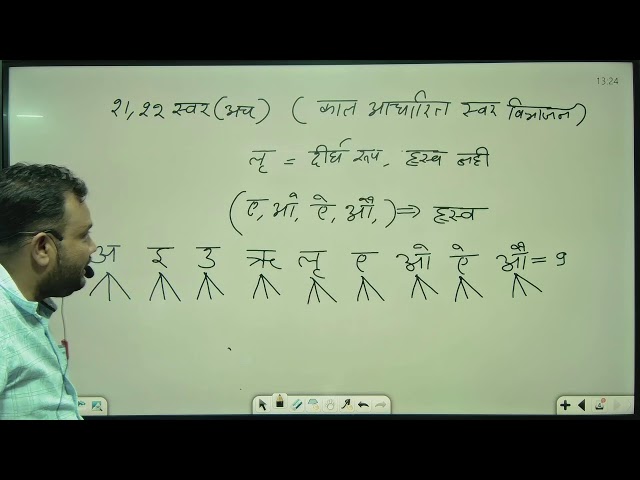 13:24
२१,२२ स्वर (अच) ( काल आधारित स्वर विभाजन)
लृ = दीर्घ रूप, हृस्व नही
(ए, ओ, ऐ, औ,) ⇒ हृस्व
अ इ उ ऋ लृ ए ओ ऐ औ = 9